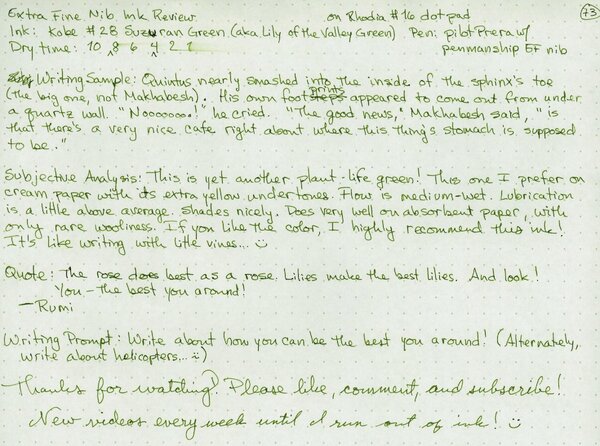 Extra Fine Nib Ink Review on Rhodia #16 dotpad 73
Ink: Kobe #28 Suzuran Green (aka Lily of the Valley Green) Pen: pilot Prera w/
Dry time: 10 8 6 4 2 1 penmanship EF nib
Writing Sample: Quintus nearly smashed into the inside of the sphinx's toe
(the big one, not Makhabesh). His own footprints appeared to come out from under
a quartz wall. "Nooooooo!" he cried. "The good news," Makhabesh said, "is
that there's a very nice cafe right about where this thing's stomach is supposed
to be."
Subjective Analysis: This is yet another plant-life green! This one I prefer on
cream paper with its extra yellow undertones. Flow is medium-wet. Lubrication
is a little above average. Shades nicely. Does very well on absorbent paper, with
only rare wooliness. If you like the color, I highly recommend this ink!
It's like writing with little vines... :)
Quote: The rose does best as a rose. Lilies make the best lilies. And look!
You - the best you around!
- Rumi
Writing Prompt: Write about how you can be the best you around! (Alternately,
write about helicopters... :)
Thanks for watching! Please like, comment, and subscribe!
New videos every week until I run out of ink! :)